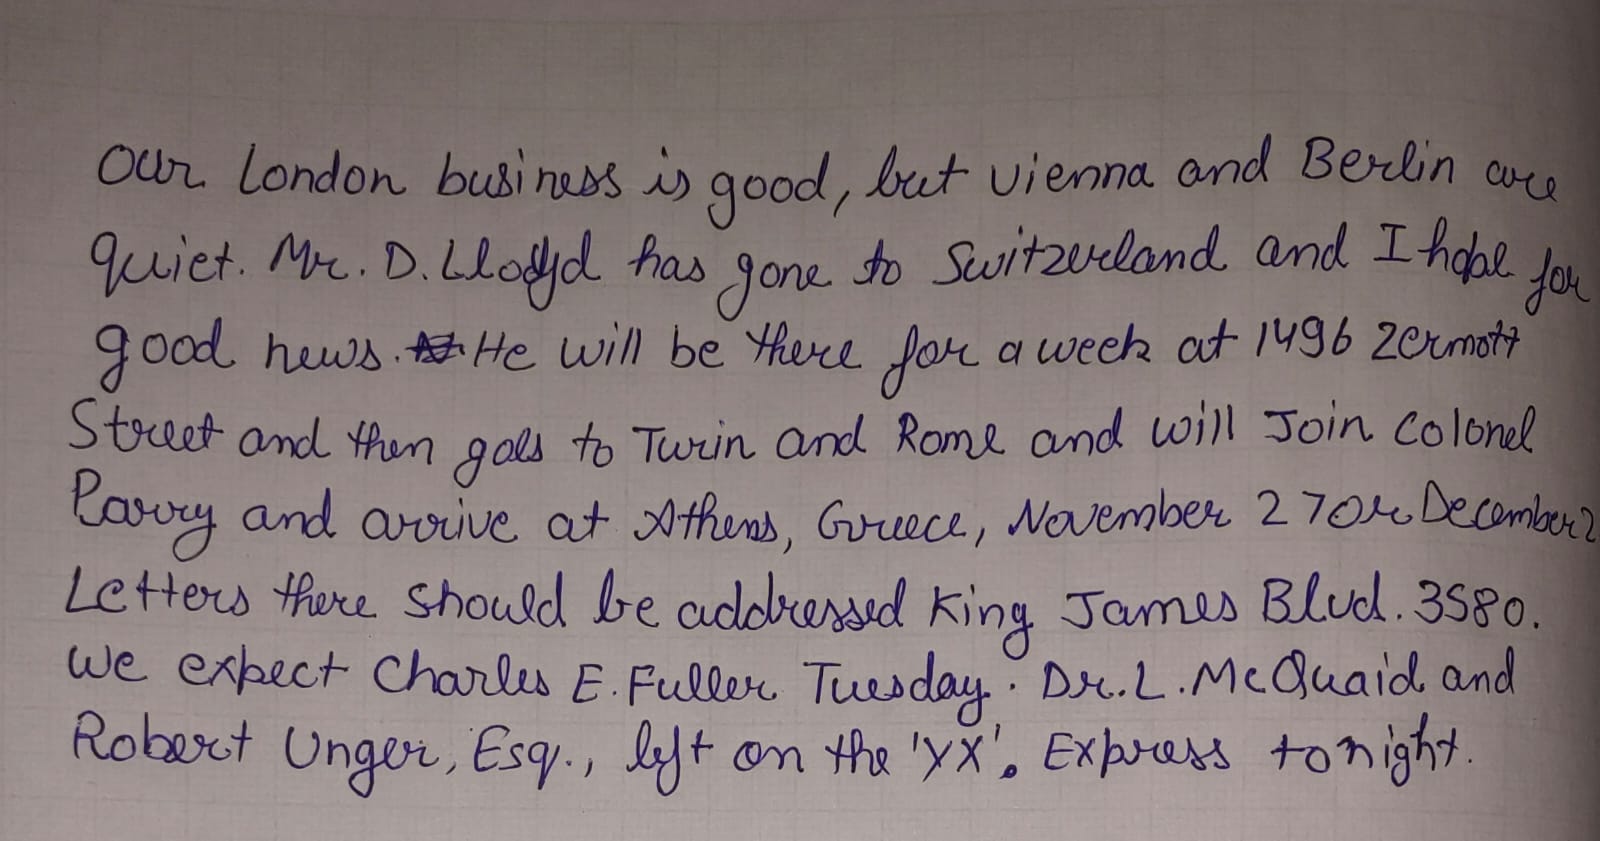 Our London business is good, but vienna and Berlin are
quiet. Mr. D. Lloyd has gone to Switzerland and I hope for
good news. He will be there for a week at 1496 Zermott
Street and then goes to Turin and Rome and will Join Colonel
Parry and arrive at Athens, Greece, November 27 or December 2
Letters there should be addressed King James Blvd. 3580.
We expect Charles E. Fuller Tuesday. Dr. L. McQuaid and
Robert Unger, Esq., left on the 'YX'. Express tonight.